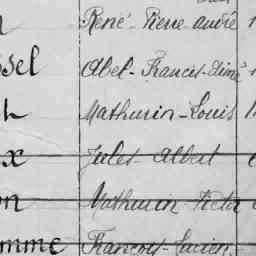 René Pierre André
ssel Abel Francis Aimé
h Mathurin Louis
x Jules Albert
on Mathurin Victor
omme François Lucien